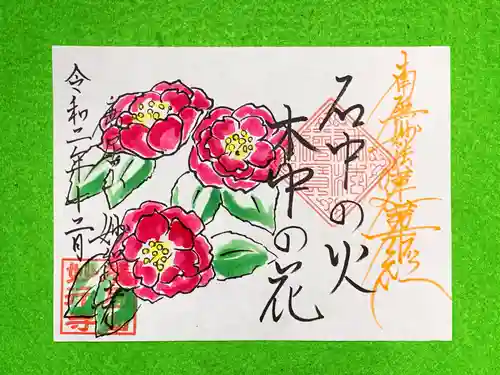 南無妙法蓮華経
石中の火
木中の花
令和二年十二月